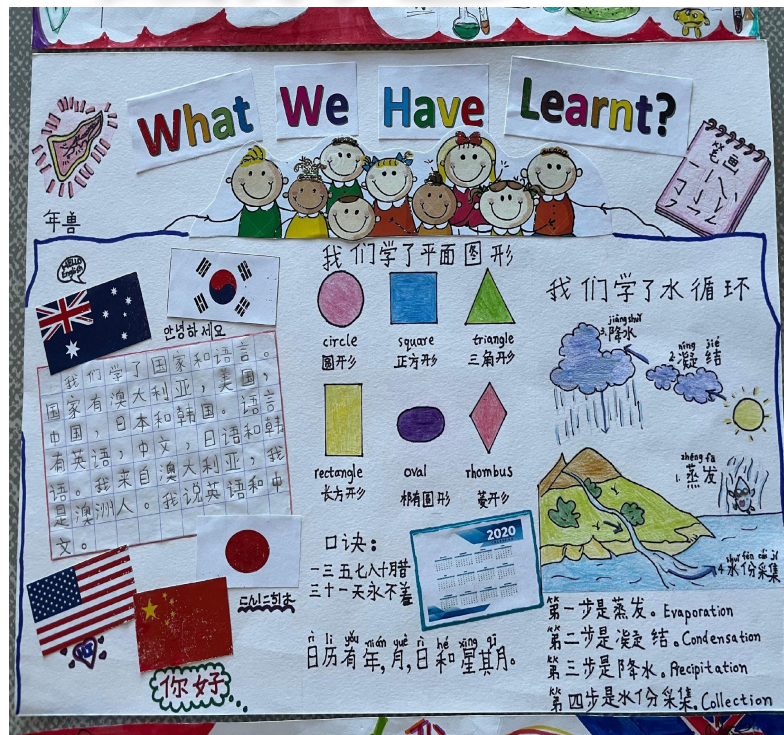 What We Have Learnt?
笔画
年兽
HELLO
English
안녕하세요
我们学了国家和语言。
国家有澳大利亚，美国，
中国，日本和韩国。语言
有英语，中文，日语和韩
语。我来自澳大利亚，我
是澳洲人。我说英语和中
文。
你好
我们学了平面图形
circle square triangle
圆形 正方形 三角形
rectangle oval rhombus
长方形 椭圆形 菱形
口诀：
一三五七八十月腊
三十一天永不差
2020
rì lì yǒu nián yuè rì hé xīng qī
日历有年，月，日和星其月。
我们学了水循环
jiàng shuǐ
3.降水
níng jié
2.凝结
zhēng fā
1.蒸发
shuǐ fèn cǎi jí
4水份采集
第一步是蒸发。Evaporation
第二步是凝结。Condensation
第三步是降水。Precipitation
第四步是水份采集。Collection